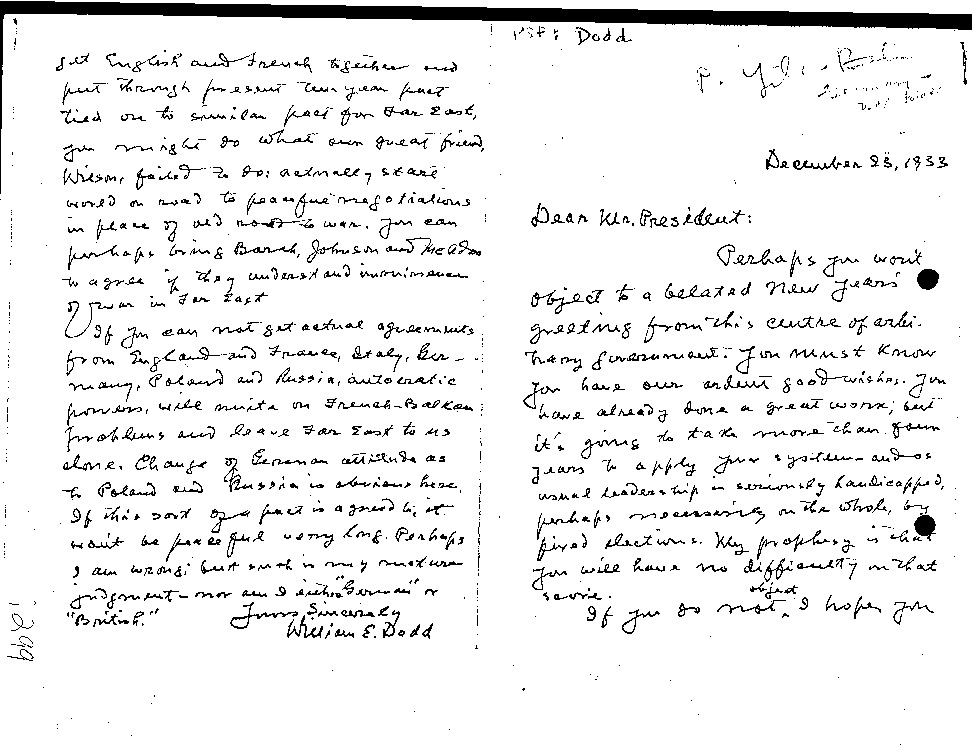 PSF: Dodd
P.
December 23, 1933
Dear Mr. President:
Perhaps you won't
object to a belated New Years
greeting from this centre of arbi-
trary government. You must know
you have our ardent good wishes. You
have already done a great work; but
it's going to take more than four
years to apply your system—and as
usual leadership is seriously handicapped,
perhaps necessarily on the whole, by
fixed elections. My prophesy is that
you will have no difficulty on that
score.
If you do not object, I hope you
get English and French together and
put through present ten year pact
tied on to similar pact for Far East,
you might do what our great friend,
Wilson, failed to do: actually start
world on road to peaceful negotiations
in place of old road to war. You can
perhaps bring Borah, Johnson and McAdoo
to agree if they understand imminence
of war in Far East
If you can not get actual agreements
from England and France, Italy, Ger-
many, Poland and Russia, autocratic
powers, will unite on French-Balkan
problems and leave Far East to us
alone. Change of German attitude as
to Poland and Russia is obvious here.
If this sort of a pact is agreed to, it
won't be peaceful very long. Perhaps
I am wrong; but such is my mature
judgment—nor am I either "German" or
"British."
Yours Sincerely
William E. Dodd
299